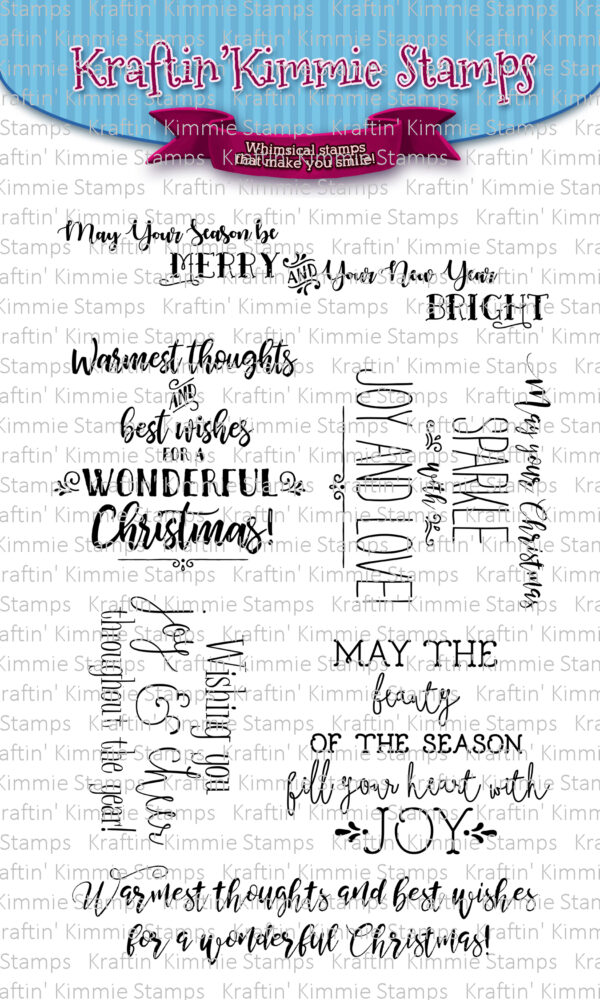 Kraftin' Kimmie Stamps
Whimsical stamps
that make you smile!
May Your Season be
MERRY AND Your New Year
BRIGHT
Warmest thoughts
AND
best wishes
FOR A
WONDERFUL
Christmas!
May your Christmas
SPARKLE
with
JOY AND LOVE!
Wishing you
joy & cheer
throughout the year!
MAY THE
beauty
OF THE SEASON
fill your heart with
JOY
Warmest thoughts and best wishes
for a wonderful Christmas!